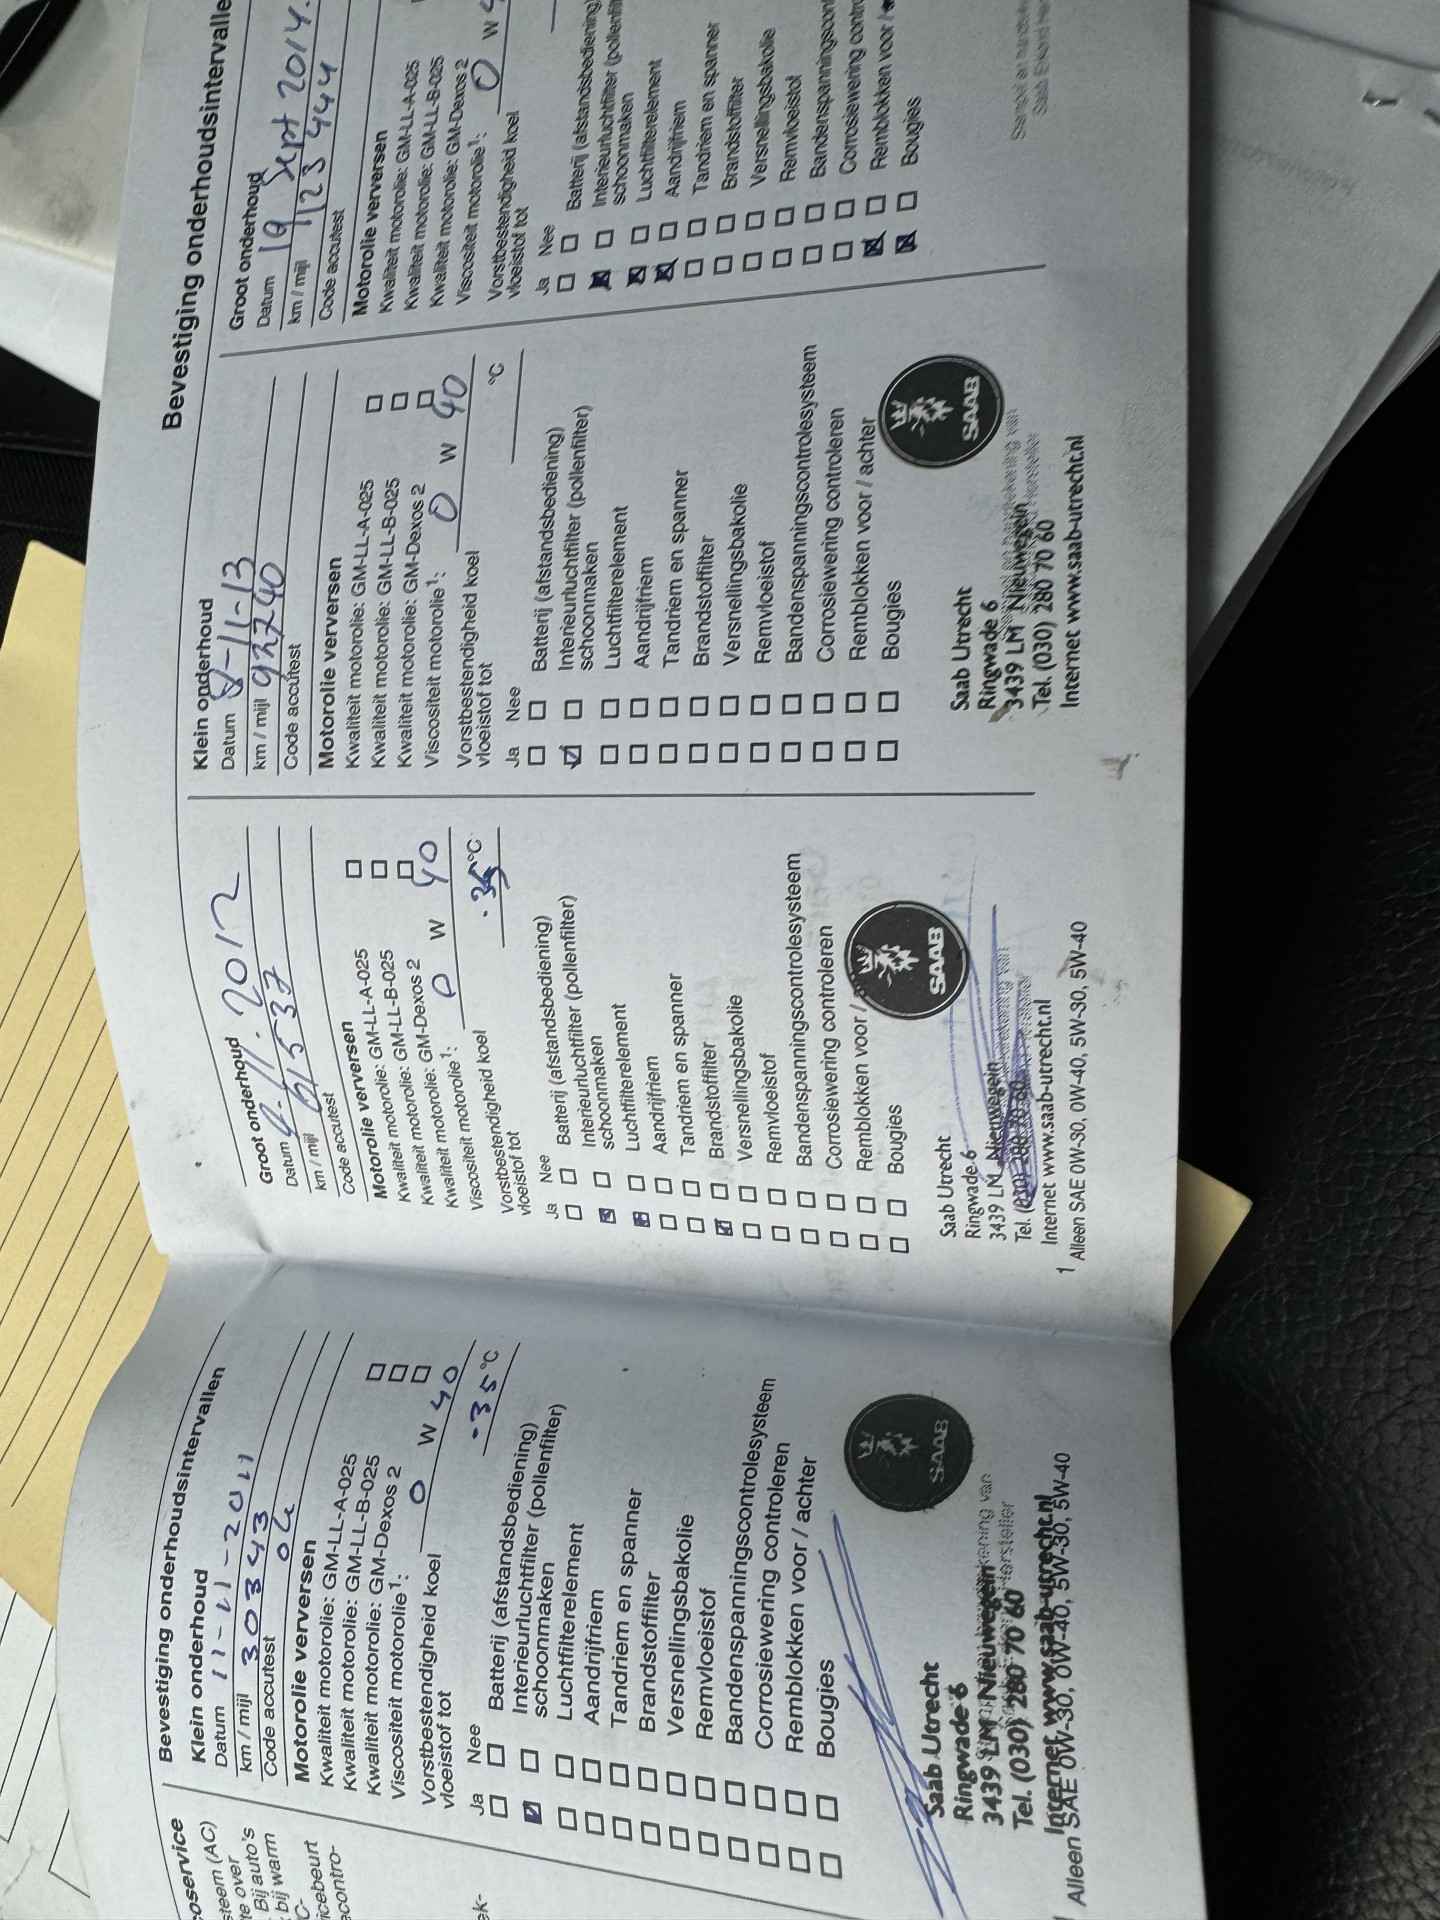 oservice
steem (AC)
te over
Bij auto's
bij warm
C-
icebeurt
econtro-
ek-
Bevestiging onderhoudsintervallen
Klein onderhoud
Datum 11-11-2011
km / mijl 30343
Code accutest 04
Motorolie verversen
Kwaliteit motorolie: GM-LL-A-025
Kwaliteit motorolie: GM-LL-B-025
Kwaliteit motorolie: GM-Dexos 2
Viscositeit motorolie¹: 0 W 40
Vorstbestendigheid koel
vloeistof tot -35 °C
Ja Nee
Batterij (afstandsbediening)
Interieurluchtfilter (pollenfilter)
schoonmaken
Luchtfilterelement
Aandrijfriem
Tandriem en spanner
Brandstoffilter
Versnellingsbakolie
Remvloeistof
Bandenspanningscontrolesysteem
Corrosiewering controleren
Remblokken voor / achter
Bougies
SAAB
Saab Utrecht
Ringwade 6
3439 LM Nieuwegein
Tel. (030) 280 70 60
Internet www.saab-utrecht.nl
1 Alleen SAE 0W-30, 0W-40, 5W-30, 5W-40
Groot onderhoud
Datum 9-11-2012
km / mijl 61537
Code accutest
Motorolie verversen
Kwaliteit motorolie: GM-LL-A-025
Kwaliteit motorolie: GM-LL-B-025
Kwaliteit motorolie: GM-Dexos 2
Viscositeit motorolie¹: 0 W 40
Vorstbestendigheid koel
vloeistof tot -35 °C
Ja Nee
Batterij (afstandsbediening)
Interieurluchtfilter (pollenfilter)
schoonmaken
Luchtfilterelement
Aandrijfriem
Tandriem en spanner
Brandstoffilter
Versnellingsbakolie
Remvloeistof
Bandenspanningscontrolesysteem
Corrosiewering controleren
Remblokken voor /
Bougies
SAAB
Saab Utrecht
Ringwade 6
3439 LM Nieuwegein
Tel. (030) 280 70 60
Internet www.saab-utrecht.nl
1 Alleen SAE 0W-30, 0W-40, 5W-30, 5W-40
Bevestiging onderhoudsintervalle
Klein onderhoud
Datum 8-11-13
km / mijl 92740
Code accutest
Motorolie verversen
Kwaliteit motorolie: GM-LL-A-025
Kwaliteit motorolie: GM-LL-B-025
Kwaliteit motorolie: GM-Dexos 2
Viscositeit motorolie¹: 0 W 40
Vorstbestendigheid koel
vloeistof tot °C
Ja Nee
Batterij (afstandsbediening)
Interieurluchtfilter (pollenfilter)
schoonmaken
Luchtfilterelement
Aandrijfriem
Tandriem en spanner
Brandstoffilter
Versnellingsbakolie
Remvloeistof
Bandenspanningscontrolesysteem
Corrosiewering controleren
Remblokken voor / achter
Bougies
SAAB
Saab Utrecht
Ringwade 6
3439 LM Nieuwegein
Tel. (030) 280 70 60
Internet www.saab-utrecht.nl
Groot onderhoud
Datum 19 Sept 2014.
km / mijl 123444
Code accutest
Motorolie verversen
Kwaliteit motorolie: GM-LL-A-025
Kwaliteit motorolie: GM-LL-B-025
Kwaliteit motorolie: GM-Dexos 2
Viscositeit motorolie¹: 0 W
Vorstbestendigheid koel
vloeistof tot
Ja Nee
Batterij (afstandsbediening)
Interieurluchtfilter (pollenfilt
schoonmaken
Luchtfilterelement
Aandrijfriem
Tandriem en spanner
Brandstoffilter
Versnellingsbakolie
Remvloeistof
Bandenspanningscont
Corrosiewering contro
Remblokken voor /
Bougies